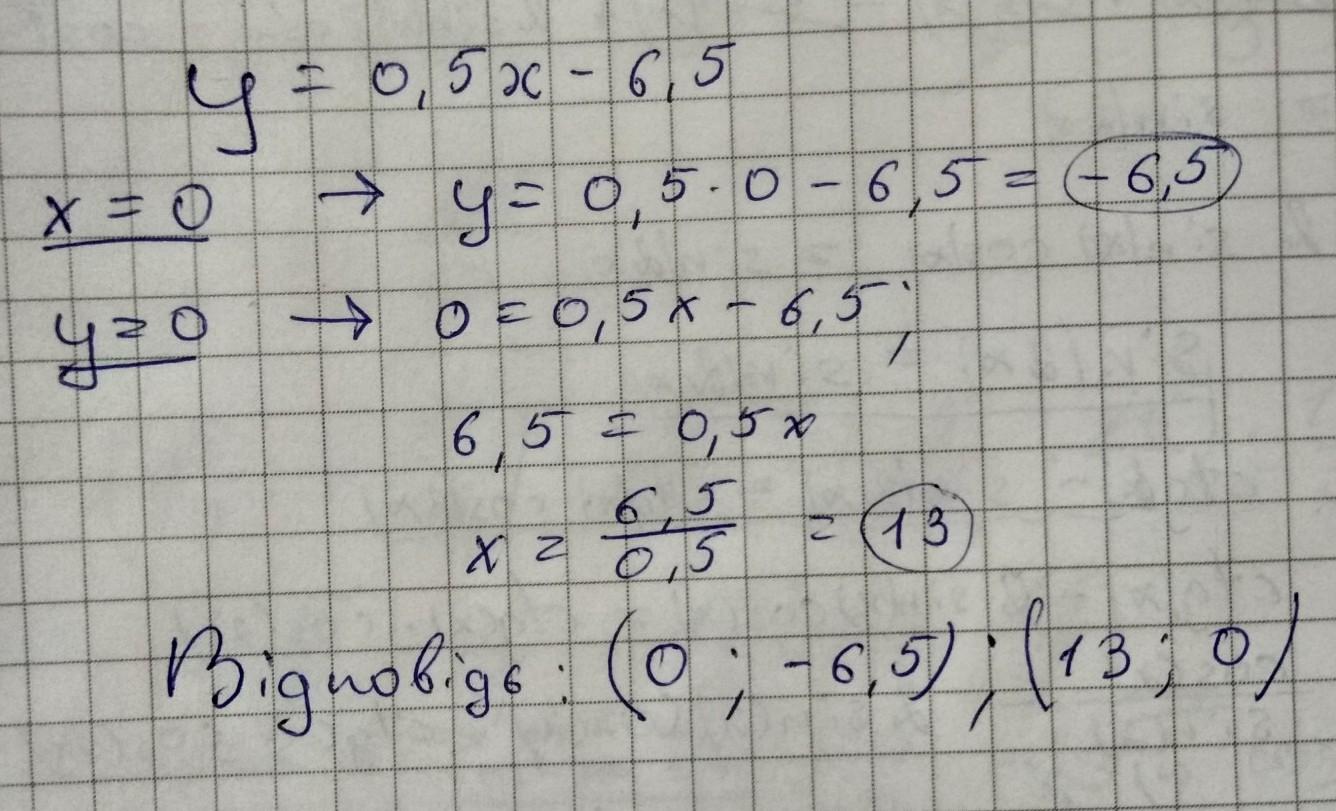 y = 0,5x - 6,5
x = 0 → y = 0,5 · 0 - 6,5 = -6,5
y = 0 → 0 = 0,5x - 6,5;
6,5 = 0,5x
x = 6,5/0,5 = 13
Відповідь: (0 ; -6,5) ; (13 ; 0)